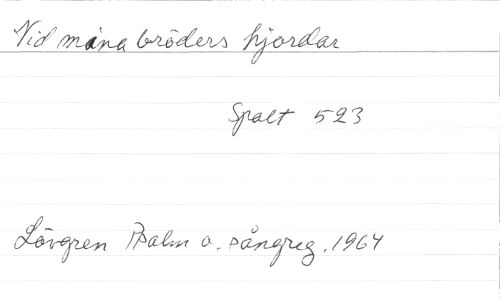 Vid mina bröders hjordar
Spalt 523
Lövgren Psalm o. sångreg. 1964